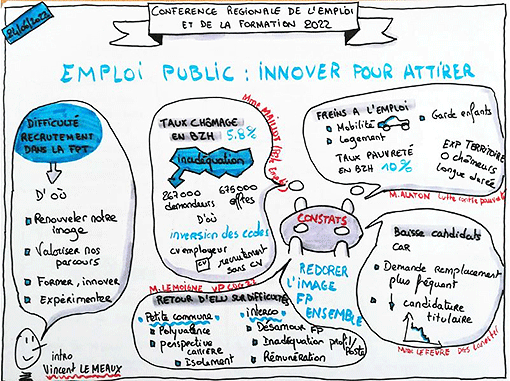 24/06/2022
CONFERENCE REGIONALE DE L'EMPLOI
ET DE LA FORMATION 2022
EMPLOI PUBLIC : INNOVER POUR ATTIRER
DIFFICULTÉ
RECRUTEMENT
DANS LA FPT
D'OÙ
Renouveler notre
image
Valoriser nos
parcours
Former, innover
Expérimenter
intro
Vincent LE MEAUX
TAUX CHÔMAGE
EN BZH 5.8%
inadéquation
267000
demandeurs
675000
offres
D'OÙ
inversion des codes
CV employeur
CV
recrutement
sans cv
FREINS A L'EMPLOI
Mobilité
Logement
Garde enfants
TAUX PAUVRETÉ
EN BZH 10%
EXP TERRITOIRE
0 chômeurs
longue durée
CONSTATS
REDORER
L'IMAGE
FP
ENSEMBLE
Baisse candidats
CAR
Demande remplacement
plus fréquent
candidature
titulaire
M. LEMOIGNE VP CDG
RETOUR D'ELU SUR DIFFICULTÉS
Petite commune
Polyvalence
perspective
carrière
Isolement
interco
Désamour FP
Inadéquation profil/
Poste
Rémunération